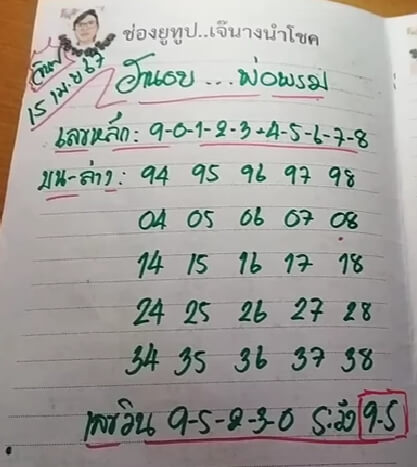 ช่องยูทูป..เจ๊นางนำโชค
15 เม.ย 67
ฮานอย...พ่อพรม
เลขหลัก: 9-0-1-2-3+4-5-6-7-8
บน-ล่าง: 94 95 96 97 98
04 05 06 07 08
14 15 16 17 18
24 25 26 27 28
34 35 36 37 38
เลขวิน 9-5-2-3-0 ระวัง 9-5